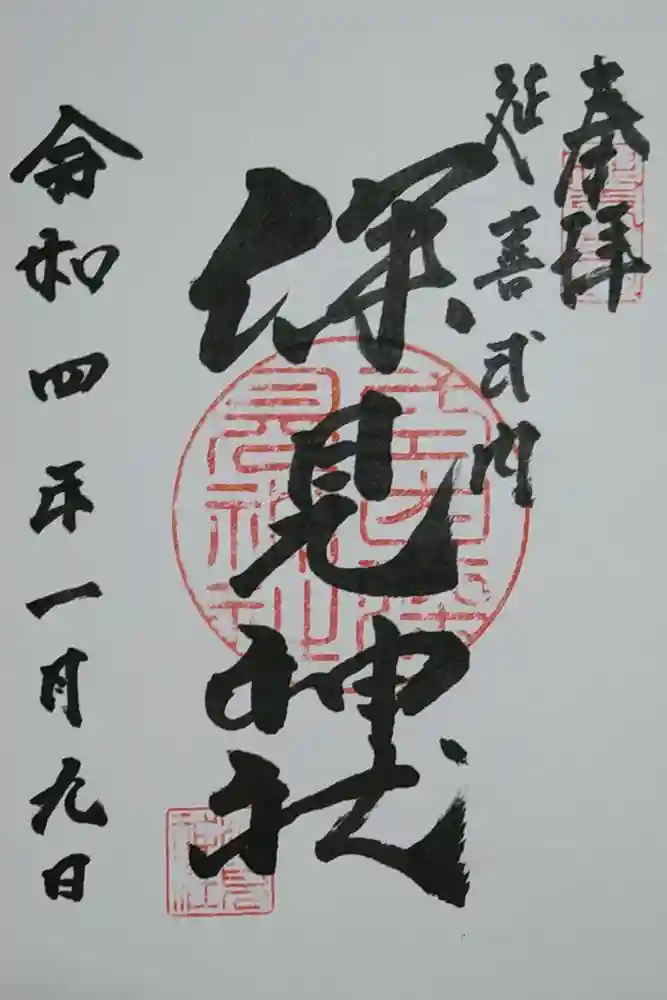 奉拝
延喜式内
深見神社
令和四年一月九日
深見
神社